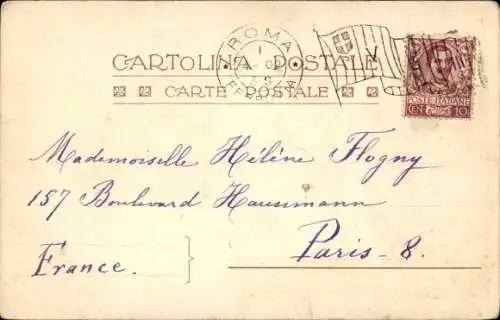 ROMA
FERROVIA
CARTOLINA POSTALE
CARTE POSTALE
POSTE ITALIANE
CEN. 10
Mademoiselle Hélène Flogny
157 Boulevard Haussmann
Paris - 8.
France.